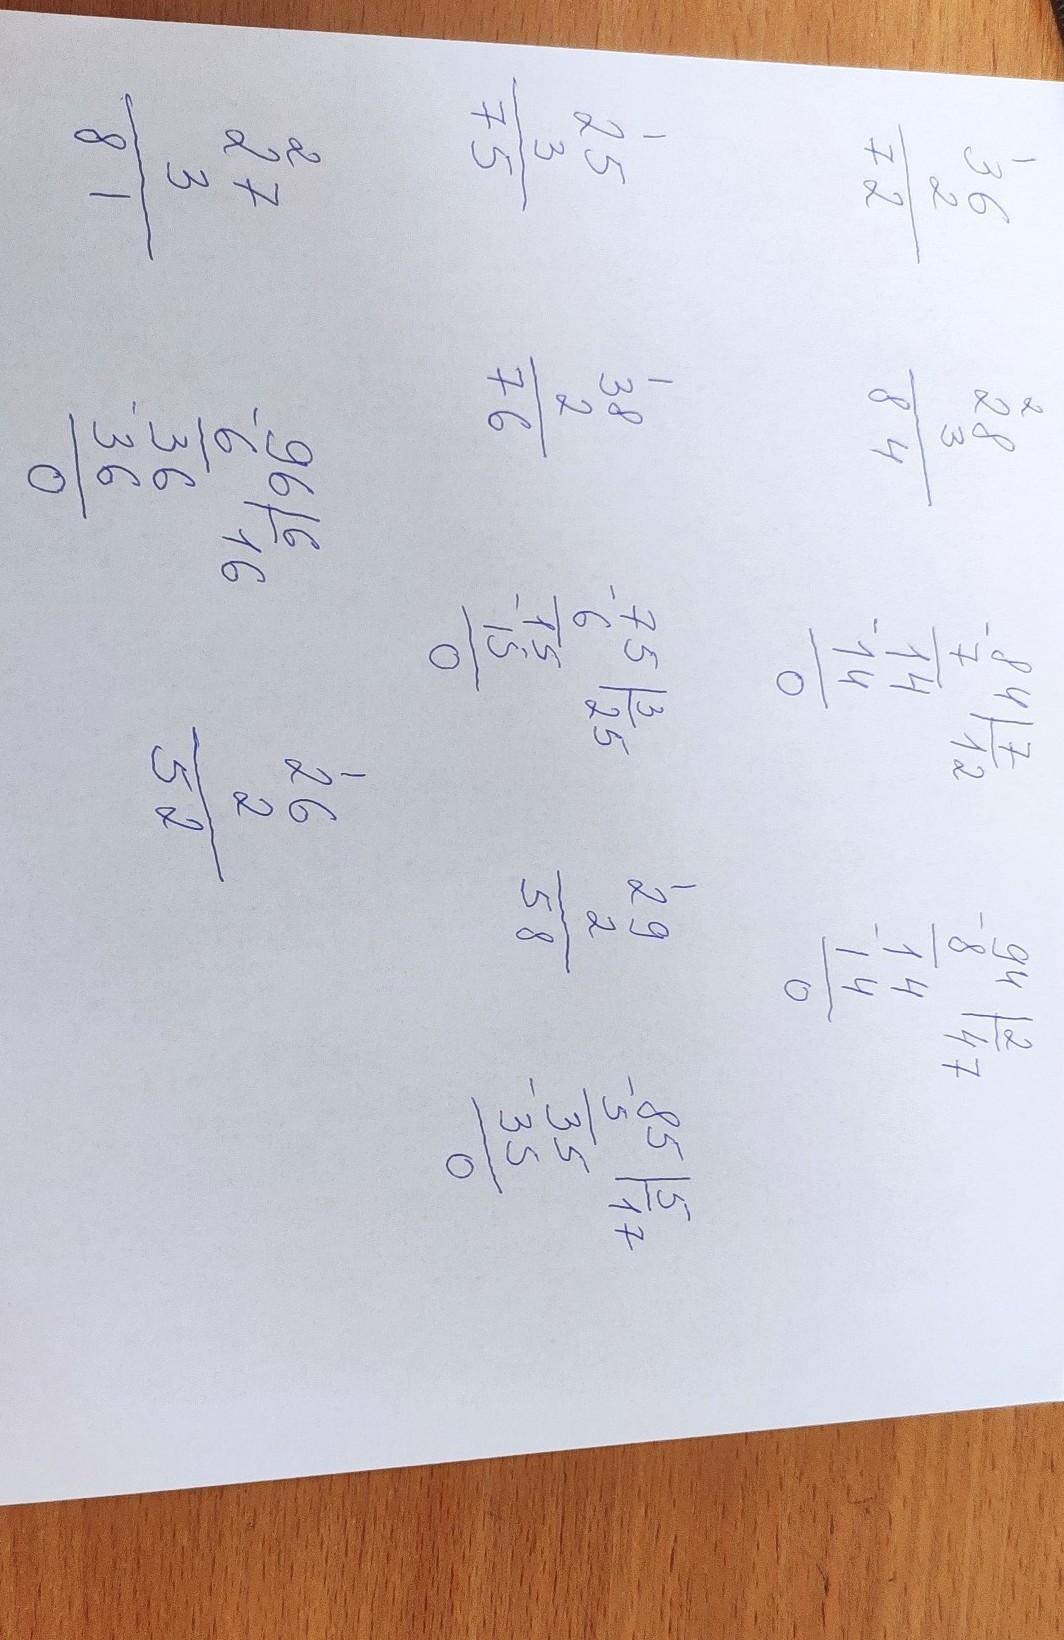 1 2
36 28 -84|7 -94|2
2 3 7 12 8 47
72 84 -14 -14
14 14
0 0
1 1 1
25 38 -75|3 29 -85|5
3 2 6 25 2 5 17
75 76 -15 58 -35
15 35
0 0
2 1
27 -96|6 26
3 6 16 2
81 -36 52
36
0